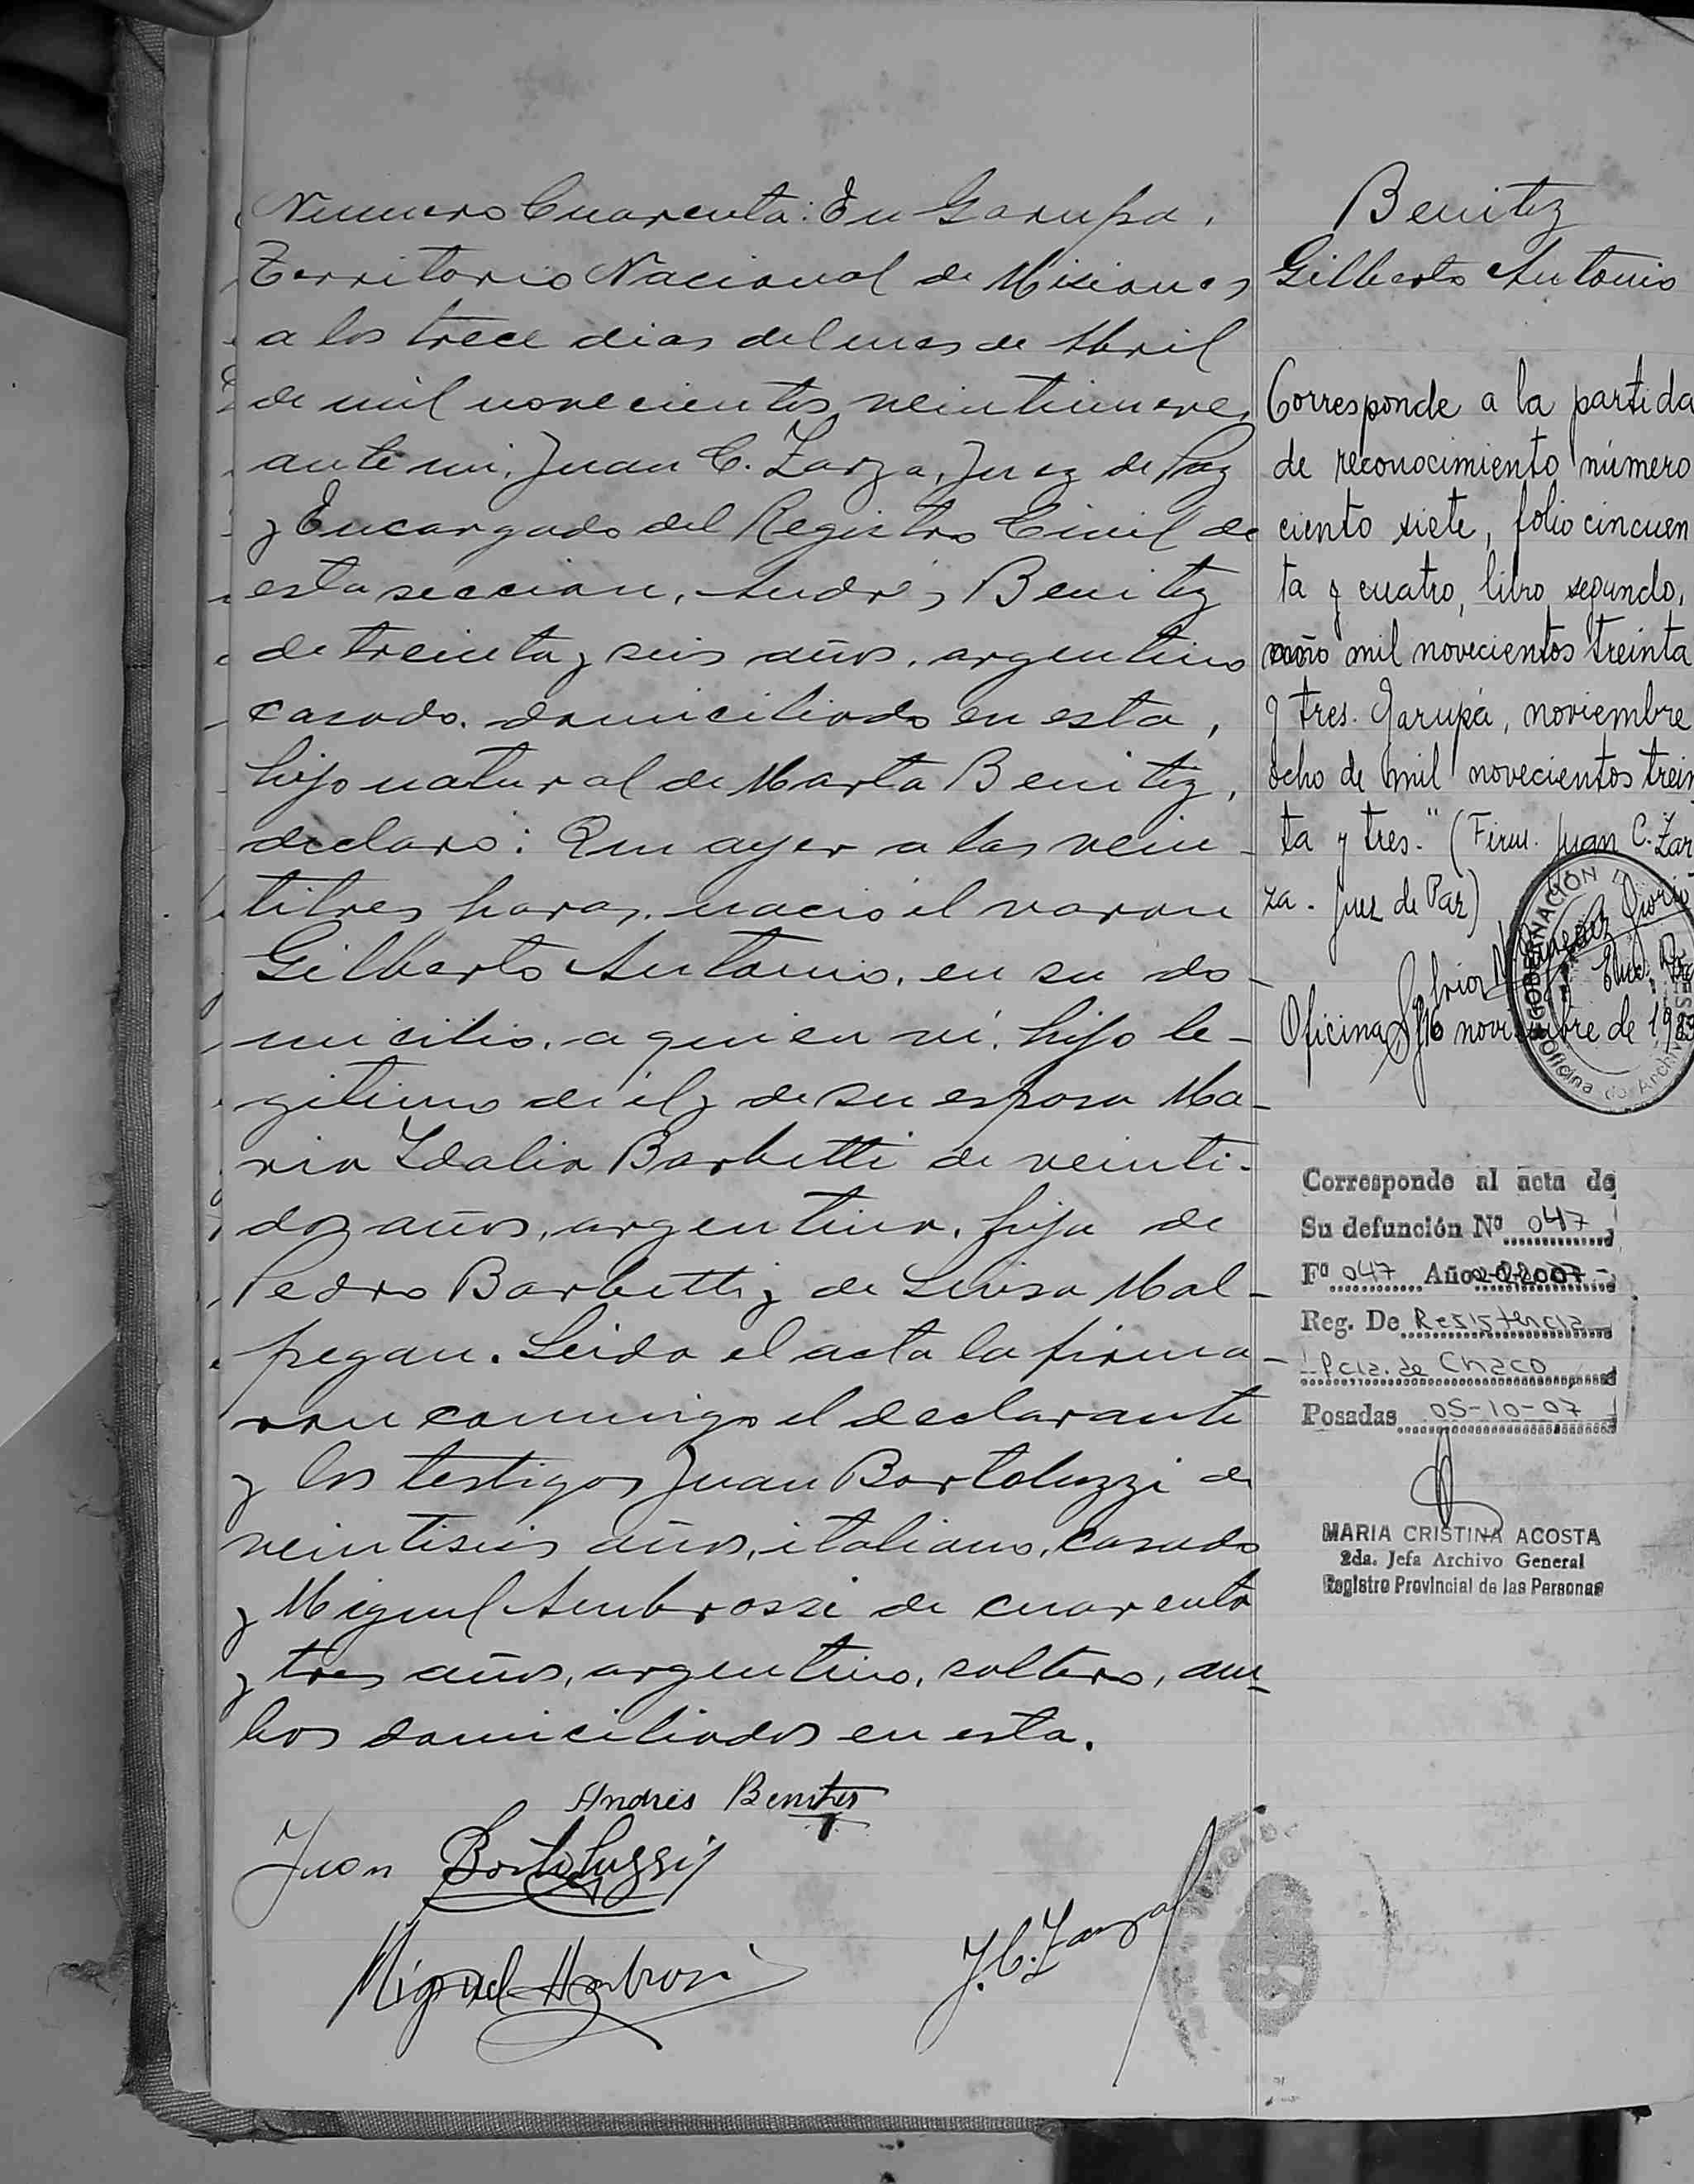 Numero Cuarenta: En Garupa,
Territorio Nacional de Misiones
a los trece dias del mes de Abril
de mil novecientos veintinueve,
ante mi, Juan C. Zarza, Juez de Paz
y Encargado del Registro Civil de
esta seccion, Andrés Benitez
de treinta y seis años, argentino
casado, domiciliado en esta,
hijo natural de Marta Benitez,
declaró: Que ayer a las vein-
titres horas, nació el varon
Gilberto Antonio, en su do-
micilio, a quien vi, hijo le-
gitimo de él y de su esposa Ma-
ria Idalia Barbetti de veinti-
dos años, argentina, hija de
Pedro Barbetti y de Luisa Mal-
pegan. Leida el acta la firma-
ron conmigo el declarante
y los testigos Juan Bortoluzzi de
veintiseis años, italiano, casado
y Miguel Ambrossi de cuarenta
y tres años, argentino, soltero, am-
bos domiciliados en esta.
Andrés Benites
Juan Bortoluzzi
Miguel Ambrosi
J. C. Zarza
Benitez
Gilberto Antonio
Corresponde a la partida
de reconocimiento número
ciento siete, folio cincuen
ta y cuatro, libro segundo,
año mil novecientos treinta
y tres. Garupá, noviembre
ocho de mil novecientos trein
ta y tres." (Firm. Juan C. Zar
za. Juez de Paz)
Oficina, 16 noviembre de 19
Oficina de Archivo
Corresponde al acta de
Su defunción Nº 047
Fº 047 Año 2007
Reg. De Resistencia
Pcia. de Chaco
Posadas 05-10-07
MARIA CRISTINA ACOSTA
2da. Jefa Archivo General
Registro Provincial de las Personas